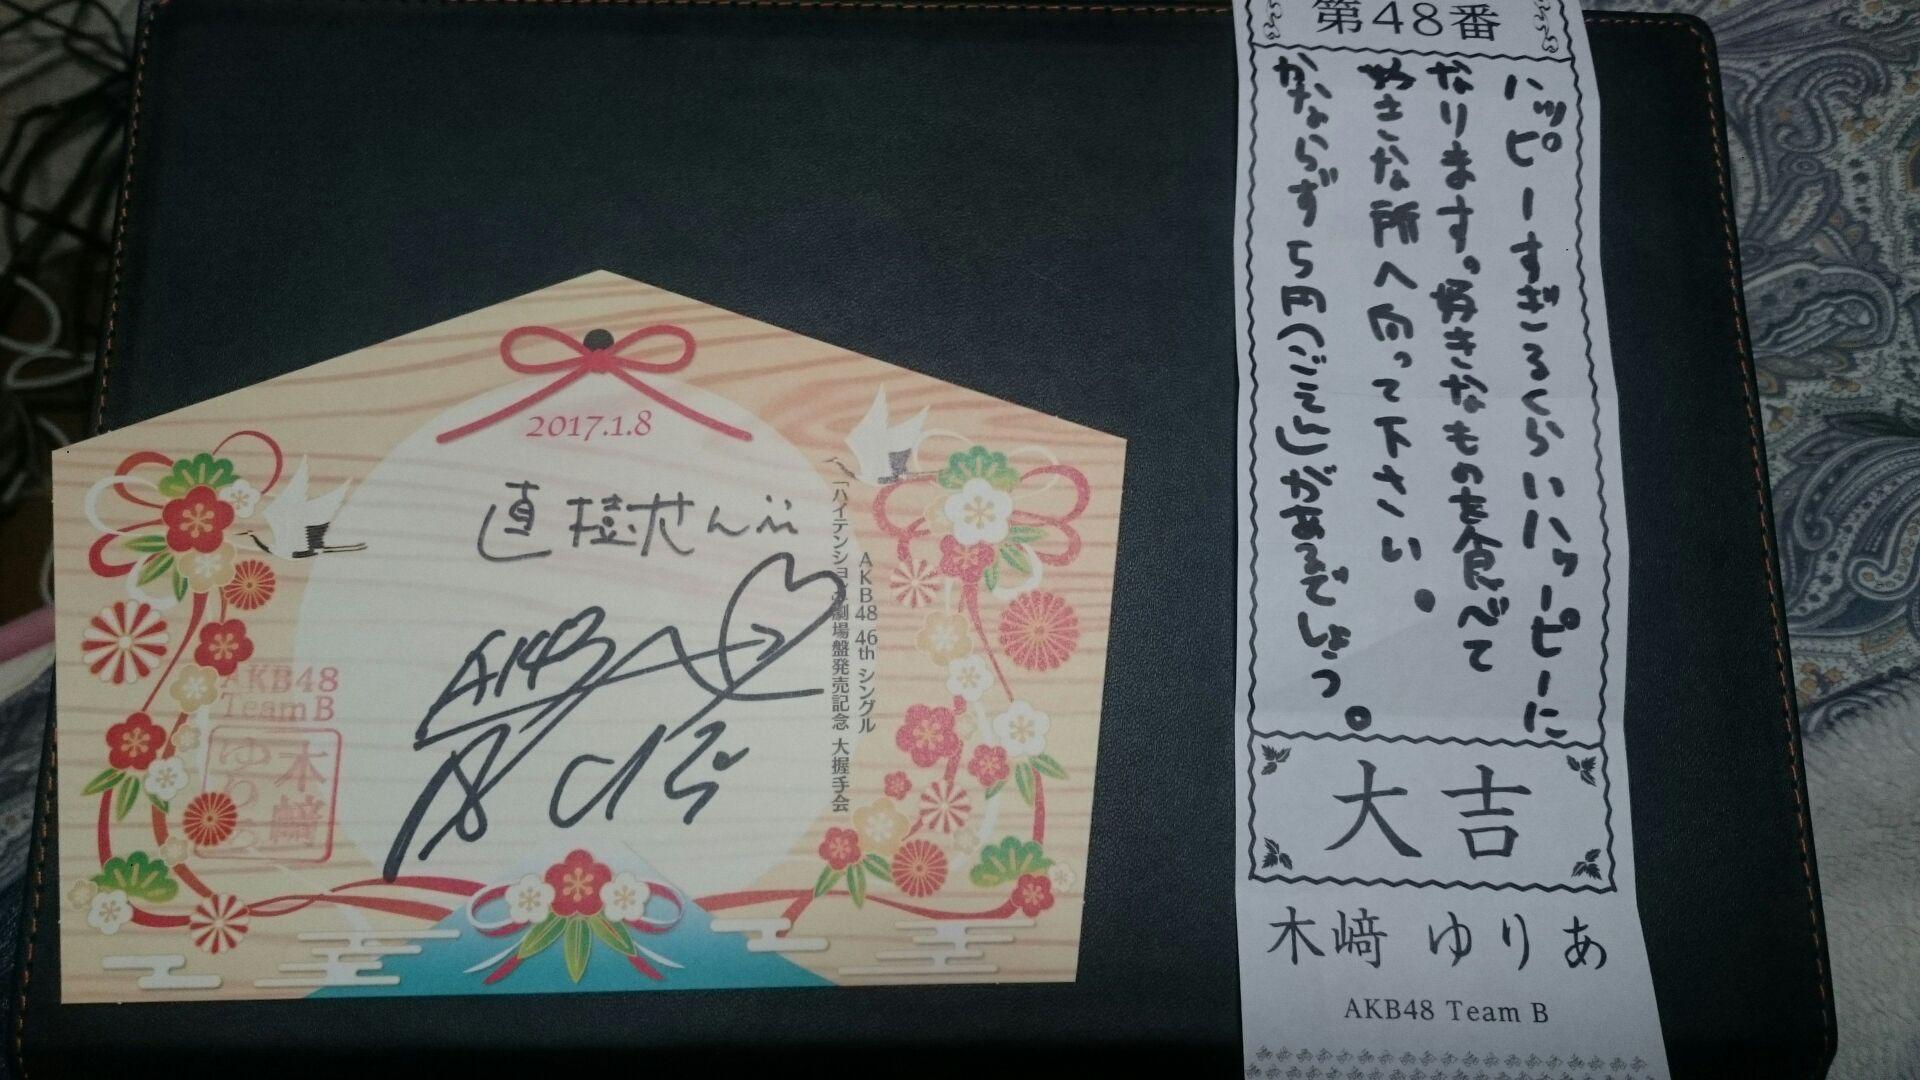 2017.1.8
直樹せんぱい
AKB48 46th シングル
「ハイテンション」劇場盤発売記念 大握手会
AKB48
Team B
木﨑
ゆりあ
第48番
ハッピーすぎるくらいハッーピーに
なります。好きなものを食べて
好きな所へ向って下さい。
かならず5円(ごえん)があるでしょう。
大吉
木﨑 ゆりあ
AKB48 Team B